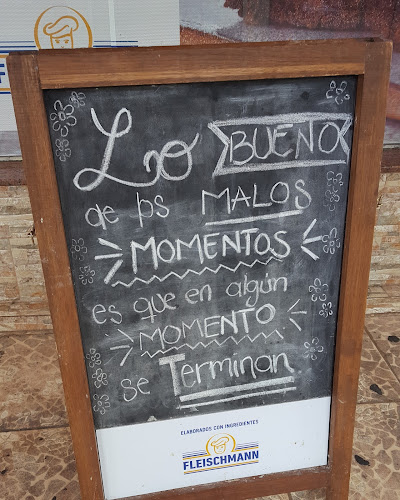 F
Lo BUENO
de los MALOS
MOMENTOS
es que en algún
MOMENTO
se Terminan
ELABORADOS CON INGREDIENTES
FLEISCHMANN